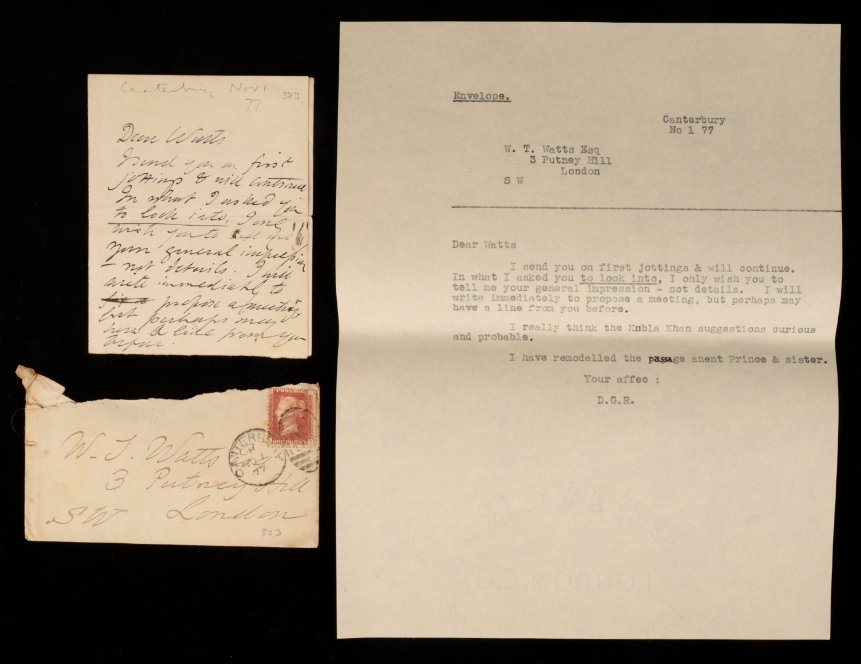 Canterbury Nov 1
77
323
Dear Watts
I send you on first
jottings & will continue
In what I asked you
to look into, I only
wish you to tell me
your general impression
– not details. I will
write immediately to
propose a meeting
but perhaps may
have a line from you
before.
W. T. Watts
3 Putney Hill
SW London
323
CANTERBURY
NO 1
77
Envelope.
Canterbury
No 1 77
W. T. Watts Esq
3 Putney Hill
London
S W
Dear Watts
I send you on first jottings & will continue.
In what I asked you to look into, I only wish you to
tell me your general impression - not details. I will
write immediately to propose a meeting, but perhaps may
have a line from you before.
I really think the Kubla Khan suggestions curious
and probable.
I have remodelled the passage anent Prince & sister.
Your affec :
D.G.R.